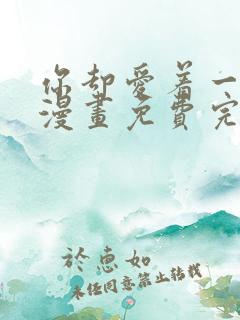 你却愛着一
漫畫免費完
於惠如
未经同意禁止转载